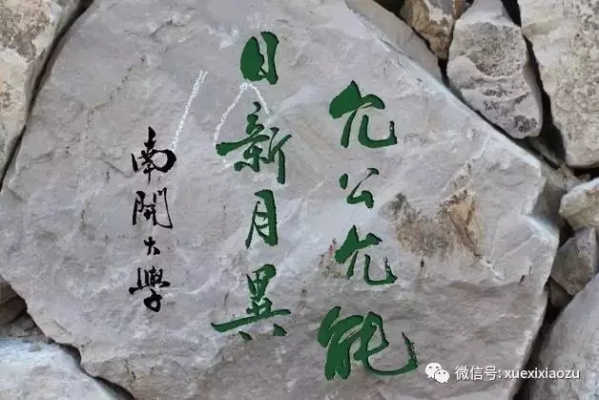 允公允能
日新月異
南開大學
微信号: xuexixiaozu